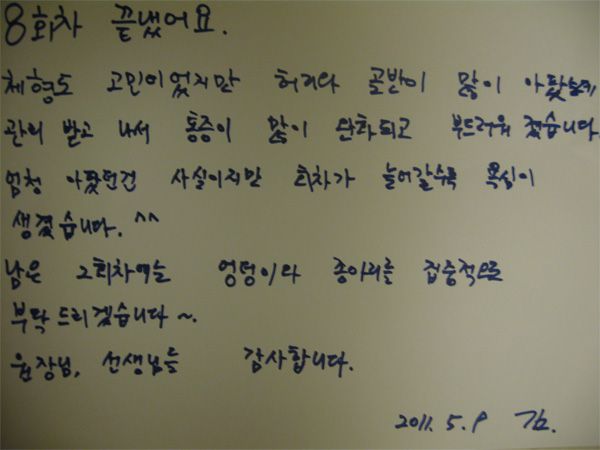 8회차 끝냈어요.
체형도 고민이었지만 허리와 골반이 많이 아팠는데,
관리 받고 나서 통증이 많이 완화되고 부드러워 졌습니다.
엄청 아팠던건 사실이지만 회차가 늘어갈수록 욕심이
생겼습니다. ^^
남은 2회차에는 엉덩이와 종아리를 집중적으로
부탁 드리겠습니다 ~.
원장님, 선생님들 감사합니다.
2011. 5. 9 김.